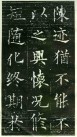 陳迹猶不能不
以之興懷况脩
短隨化終期於